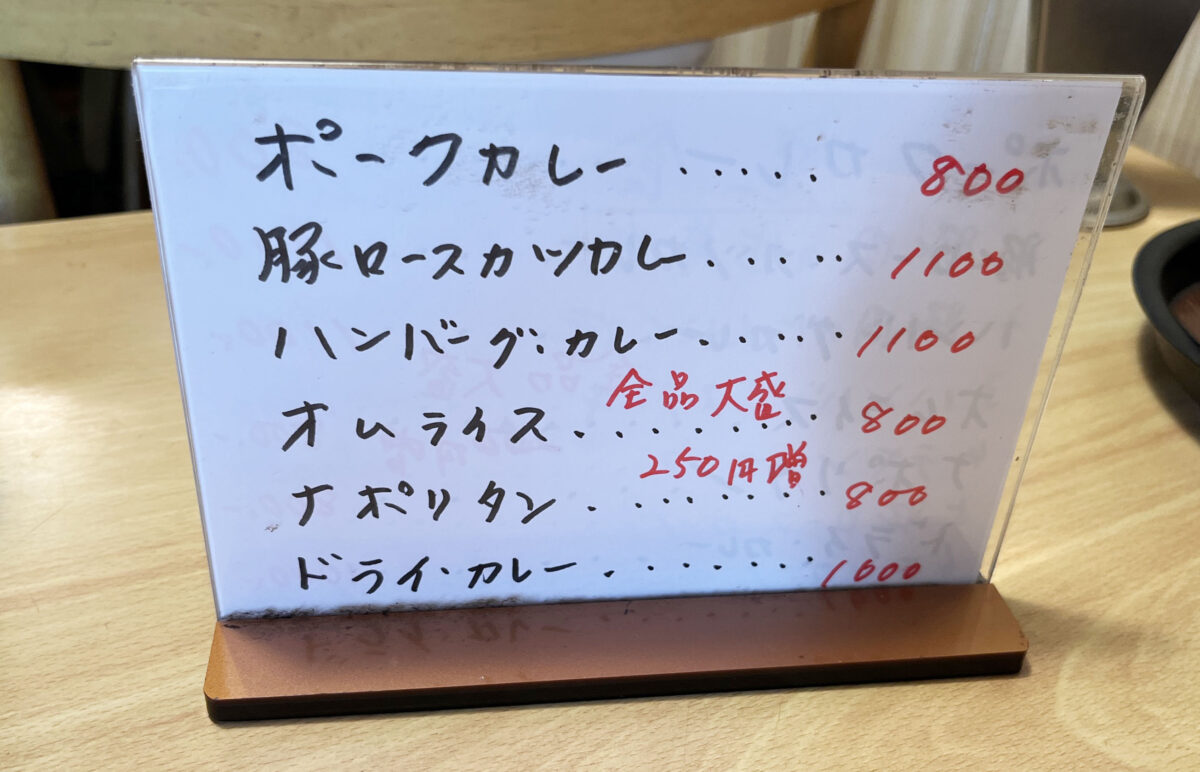 ポークカレー ..... 800
豚ロースカツカレー ...... 1100
ハンバーグ・カレー ...... 1100
全品大盛
オムライス ......... 800
250円増
ナポリタン ........ 800
ドライ・カレー ........ 1000